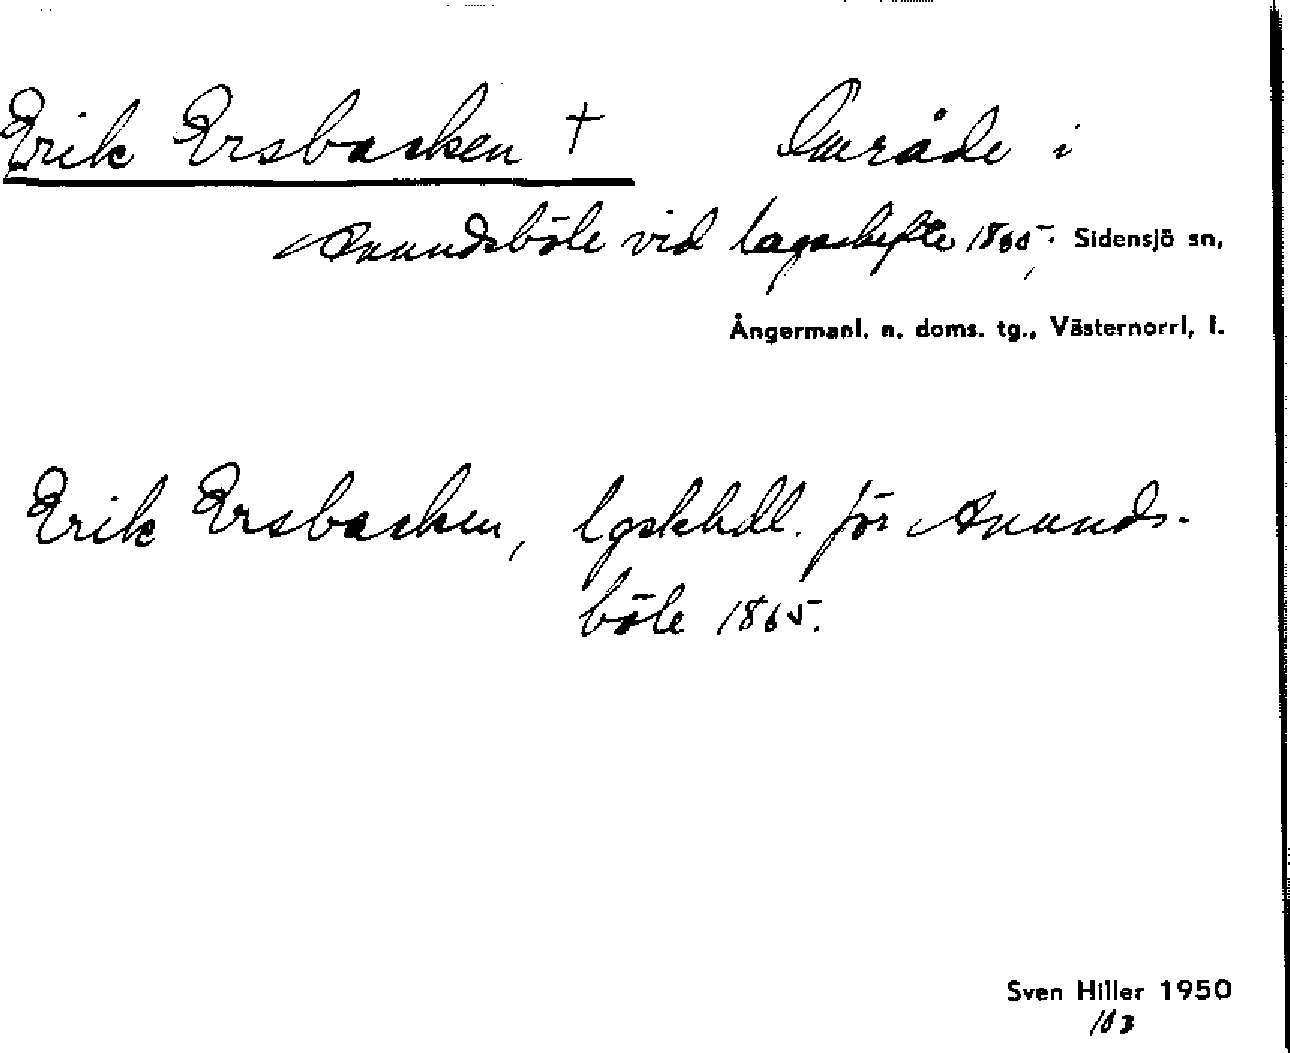 Erik Ersbacken † Område i
Anundsböle vid lagaskifte 1865. Sidensjö sn,
Ångermanl. n. doms. tg., Västernorrl, l.
Erik Ersbacken, lgskhdl. för Anunds-
böle 1865.
Sven Hiller 1950